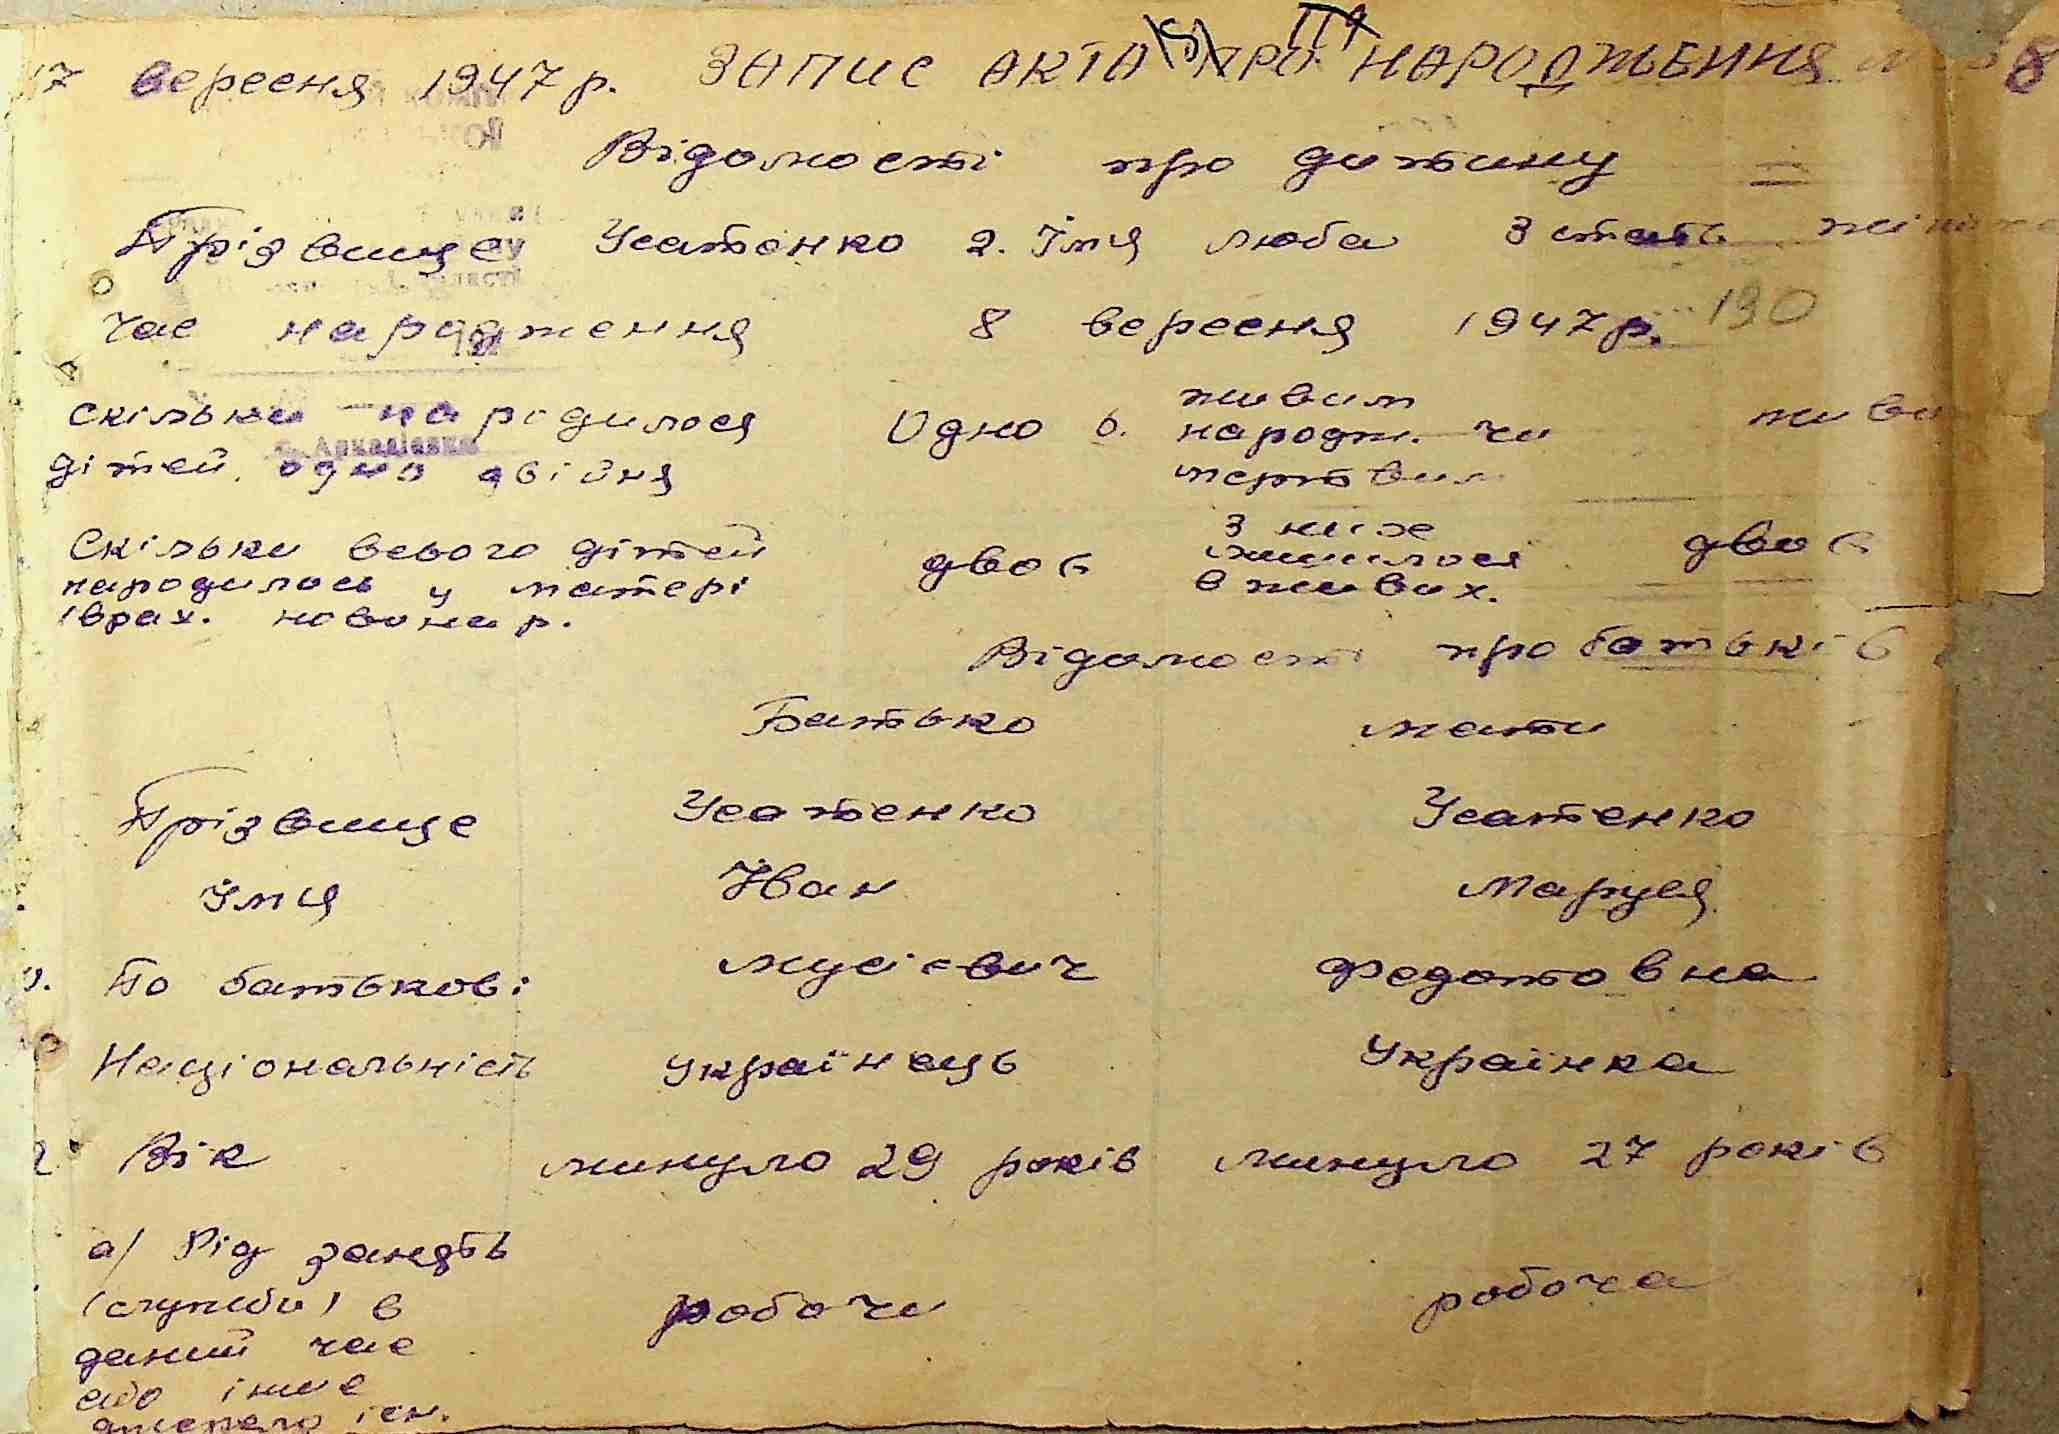 17 вересня 1947 р. ЗАПИС АКТА ПРО НАРОДЖЕННЯ 8
Відомості про дитину
Прізвище Усатенко 2. Імя Люба 3 стать
190
час народження 8 вересня 1947 р.
скільки народилося Одно 6. живим народж. чи мертвим живи
дітей, одно двійня
с. Аркадіївка
Скільки всього дітей двоє З них лишилося в живих. двоє
народилось у матері
(врах. новонар.
Відомості про батьків
Батько мати
Прізвище Усатенко Усатенко
Імя Іван Маруся
По батькові Мусієвич Федотовна
Національність Українець Українка
Вік минуло 29 років минуло 27 років
а) Рід занять
(служби) в робочи робоча
даний час
або інше
джерело існ.